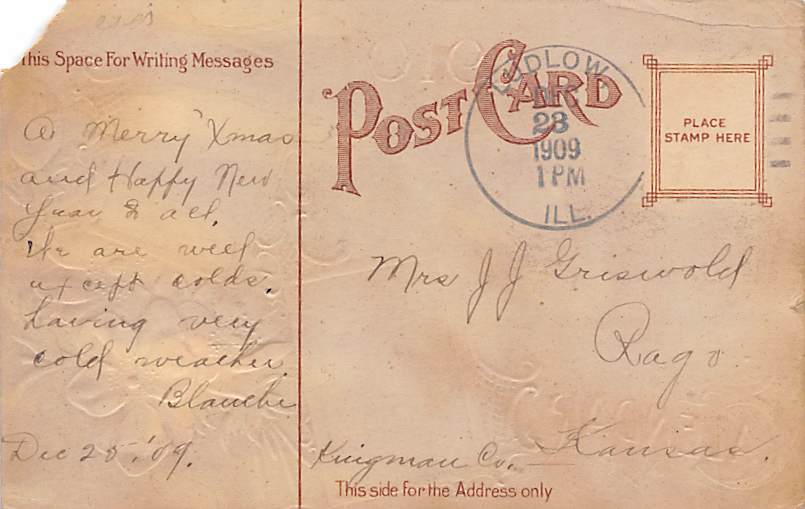 This Space For Writing Messages
A Merry Xmas
and Happy New
Year to all.
We are well
except colds.
having very
cold weather.
Blanche
Dec 25, '09.
POST CARD
LUDLOW
DEC
23
1909
1 PM
ILL.
PLACE
STAMP HERE
Mrs J J Griswold
Rago
Kingman Co. Kansas.
This side for the Address only